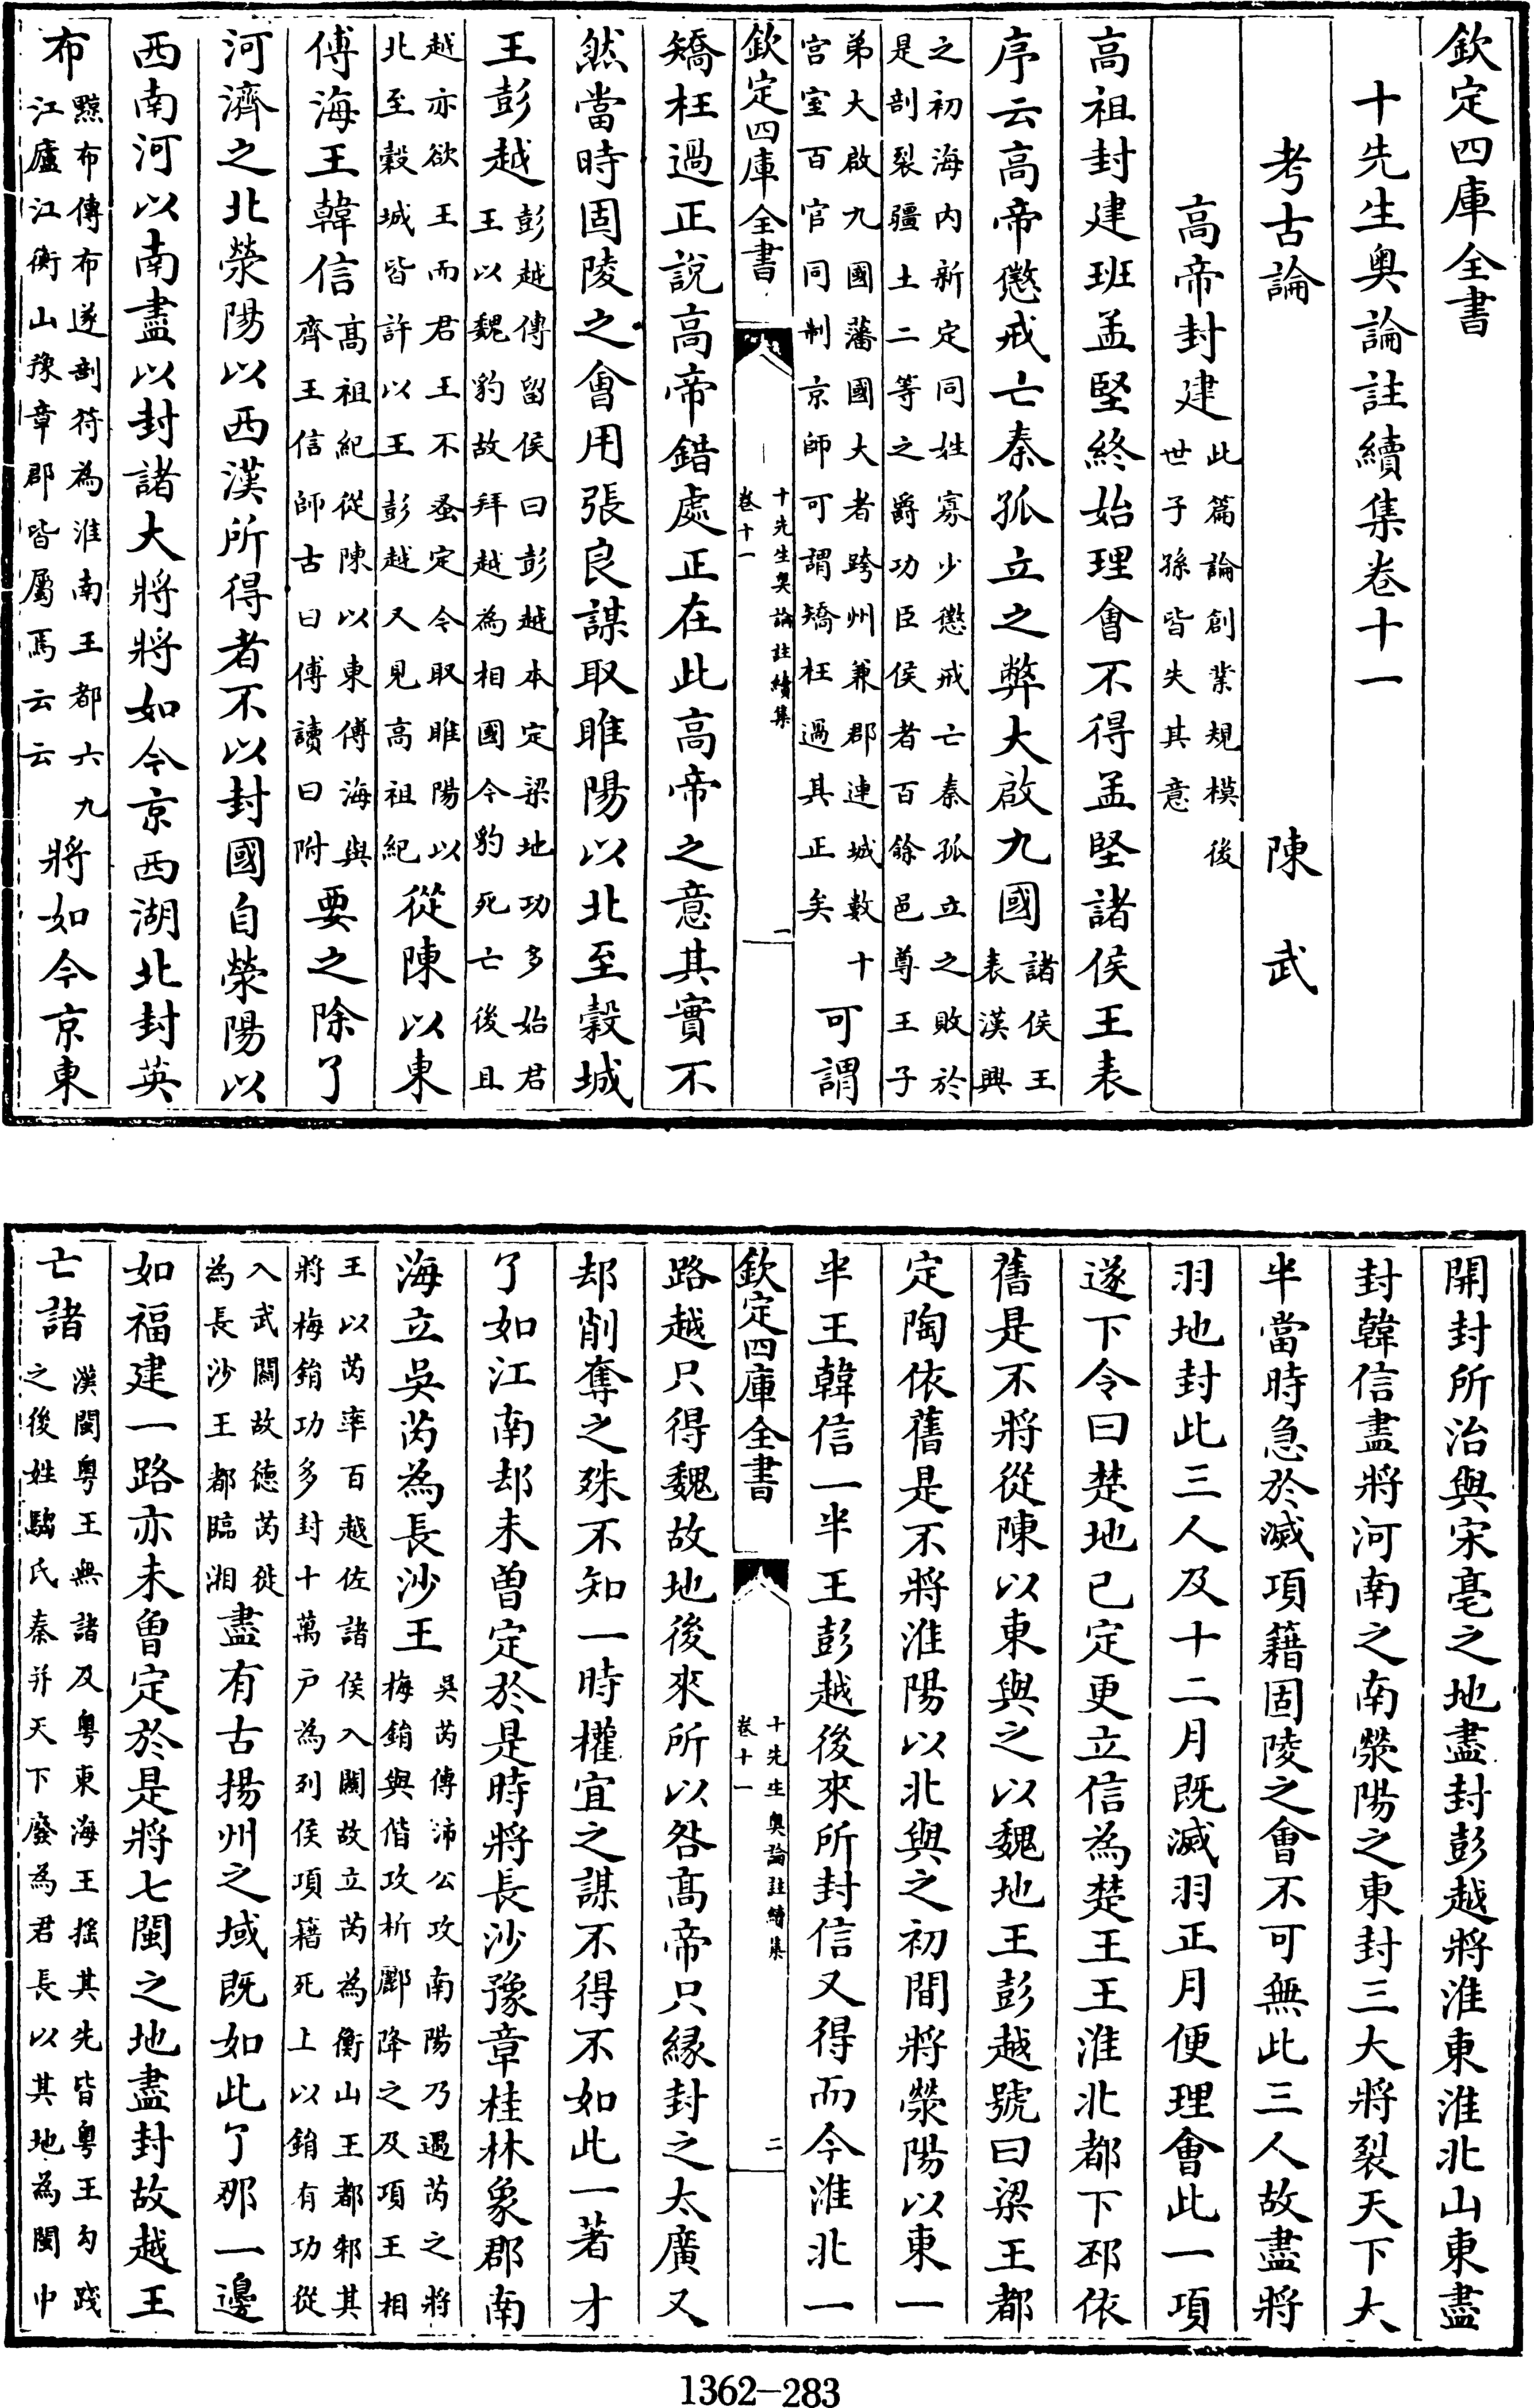 欽定四庫全書
十先生奥論註續集卷十一
考古論　陳武
高帝封建此篇論創業規模後世子孫皆失其意
高祖封建班孟堅終始理會不得孟堅諸侯王表
序云高帝懲戒亡秦孤立之弊大啟九國諸侯王表漢興
之初海内新定同姓寡少懲戒亡秦孤立之敗於是剖裂疆土二等之爵功臣侯者百餘邑尊王子
弟大啟九國藩國大者跨州兼郡連城數十宫室百官同制京師可謂矯枉過其正矣可謂
欽定四庫全書　十先生奥論註續集　卷十一　一
矯枉過正說高帝錯處正在此高帝之意其實不
然當時固陵之會用張良謀取睢陽以北至穀城
王彭越彭越傳留侯曰彭越本定梁地功多始君王以魏豹故拜越為相國今豹死亡後且
越亦欲王而君王不蚤定今取睢陽以北至穀城皆許以王彭越又見高祖紀從陳以東
傅海王韓信高祖紀從陳以東傅海與齊王信師古曰傅讀曰附要之除了
河濟之北滎陽以西漢所得者不以封國自滎陽以
西南河以南盡以封諸大將將如今京西湖北封英
布黥布傳布遂剖符為淮南王都六九江廬江衡山豫章郡皆屬焉云云將如今京東
開封所治與宋亳之地盡封彭越將淮東淮北山東盡
封韓信盡將河南之南滎陽之東封三大將裂天下大
半當時急於滅項籍固陵之會不可無此三人故盡將
羽地封此三人及十二月既滅羽正月便理會此一項
遂下令曰楚地已定更立信為楚王王淮北都下邳依
舊是不將從陳以東與之以魏地王彭越號曰梁王都
定陶依舊是不將淮陽以北與之初間將滎陽以東一
半王韓信一半王彭越後來所封信又得而今淮北一
欽定四庫全書　十先生奥論註續集　卷十一　二
路越只得魏故地後來所以咎高帝只緣封之太廣又
却削奪之殊不知一時權宜之謀不得不如此一著才
了如江南却未曾定於是時將長沙豫章桂林象郡南
海立吳芮為長沙王吳芮傳沛公攻南陽乃遇芮之將梅鋗與偕攻析酈降之及項王相
王以芮率百越佐諸侯入關故立芮為衡山王都邾其將梅鋗功多封十萬户為列侯項籍死上以鋗有功從
入武關故德芮徙為長沙王都臨湘盡有古揚州之域既如此了那一邊
如福建一路亦未曾定於是將七閩之地盡封故越王
亡諸漢閩粤王無諸及粤東海王揺其先皆粤王勾踐之後姓騶氏秦并天下廢為君長以其地為閩中
1362—283